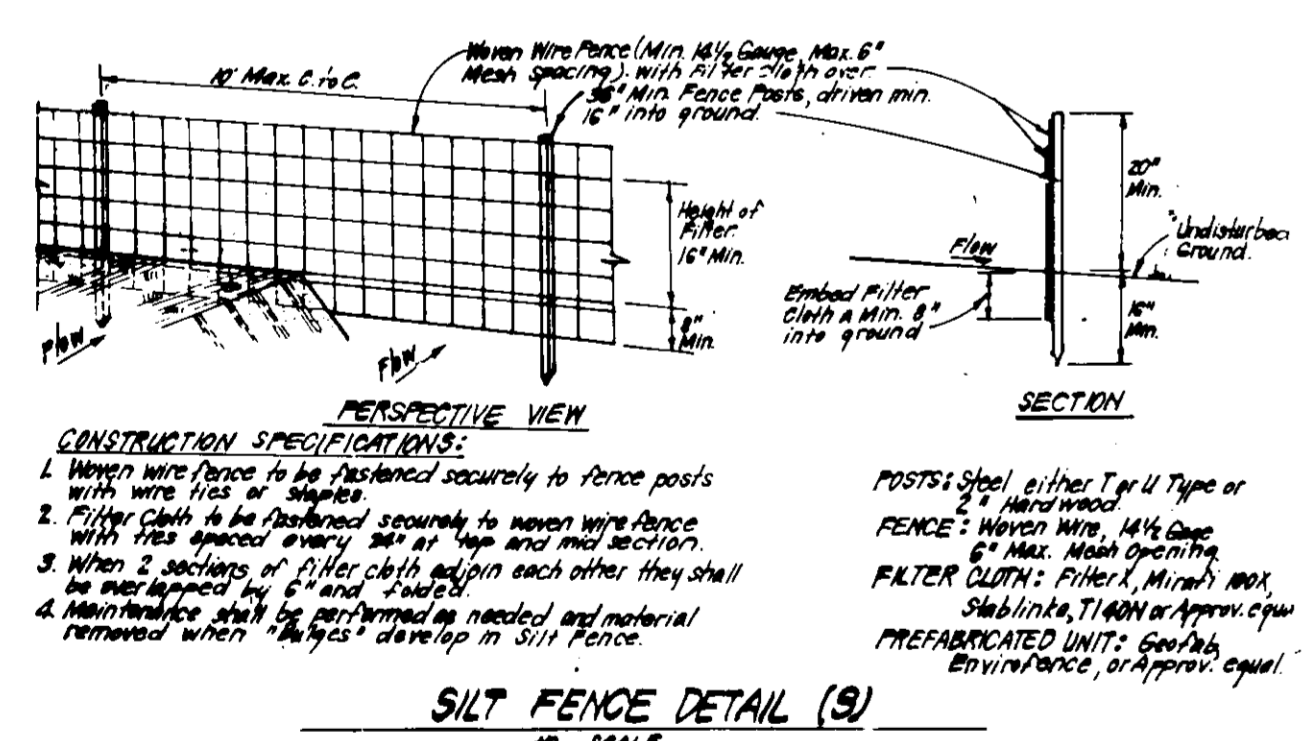 Woven Wire Fence (Min. 14½ Gauge, Max. 6"
Mesh spacing) with Filter Cloth over.
36" Min. Fence Posts, driven min.
16" into ground.
10' Max. C. to C.
Height of
Filter
16" Min.
8"
Min.
Flow
Flow
PERSPECTIVE VIEW
20"
Min.
Undisturbed
Ground.
Flow
Embed Filter
Cloth a Min. 8"
into ground
16"
Min.
SECTION
CONSTRUCTION SPECIFICATIONS:
1. Woven wire fence to be fastened securely to fence posts
with wire ties or staples.
2. Filter Cloth to be fastened securely to woven wire fence
with ties spaced every 24" at top and mid section.
3. When 2 sections of filter cloth adjoin each other they shall
be overlapped by 6" and folded.
4. Maintenance shall be performed as needed and material
removed when "Bulges" develop in Silt Fence.
POSTS: Steel either T or U Type or
2" Hardwood.
FENCE: Woven Wire, 14½ Gage
6" Max. Mesh Opening
FILTER CLOTH: Filter X, Mirafi 100X,
Stablinka, T140N or Approv. equa
PREFABRICATED UNIT: Geofab,
Envirofence, or Approv. equal.
SILT FENCE DETAIL (S)
SCALE